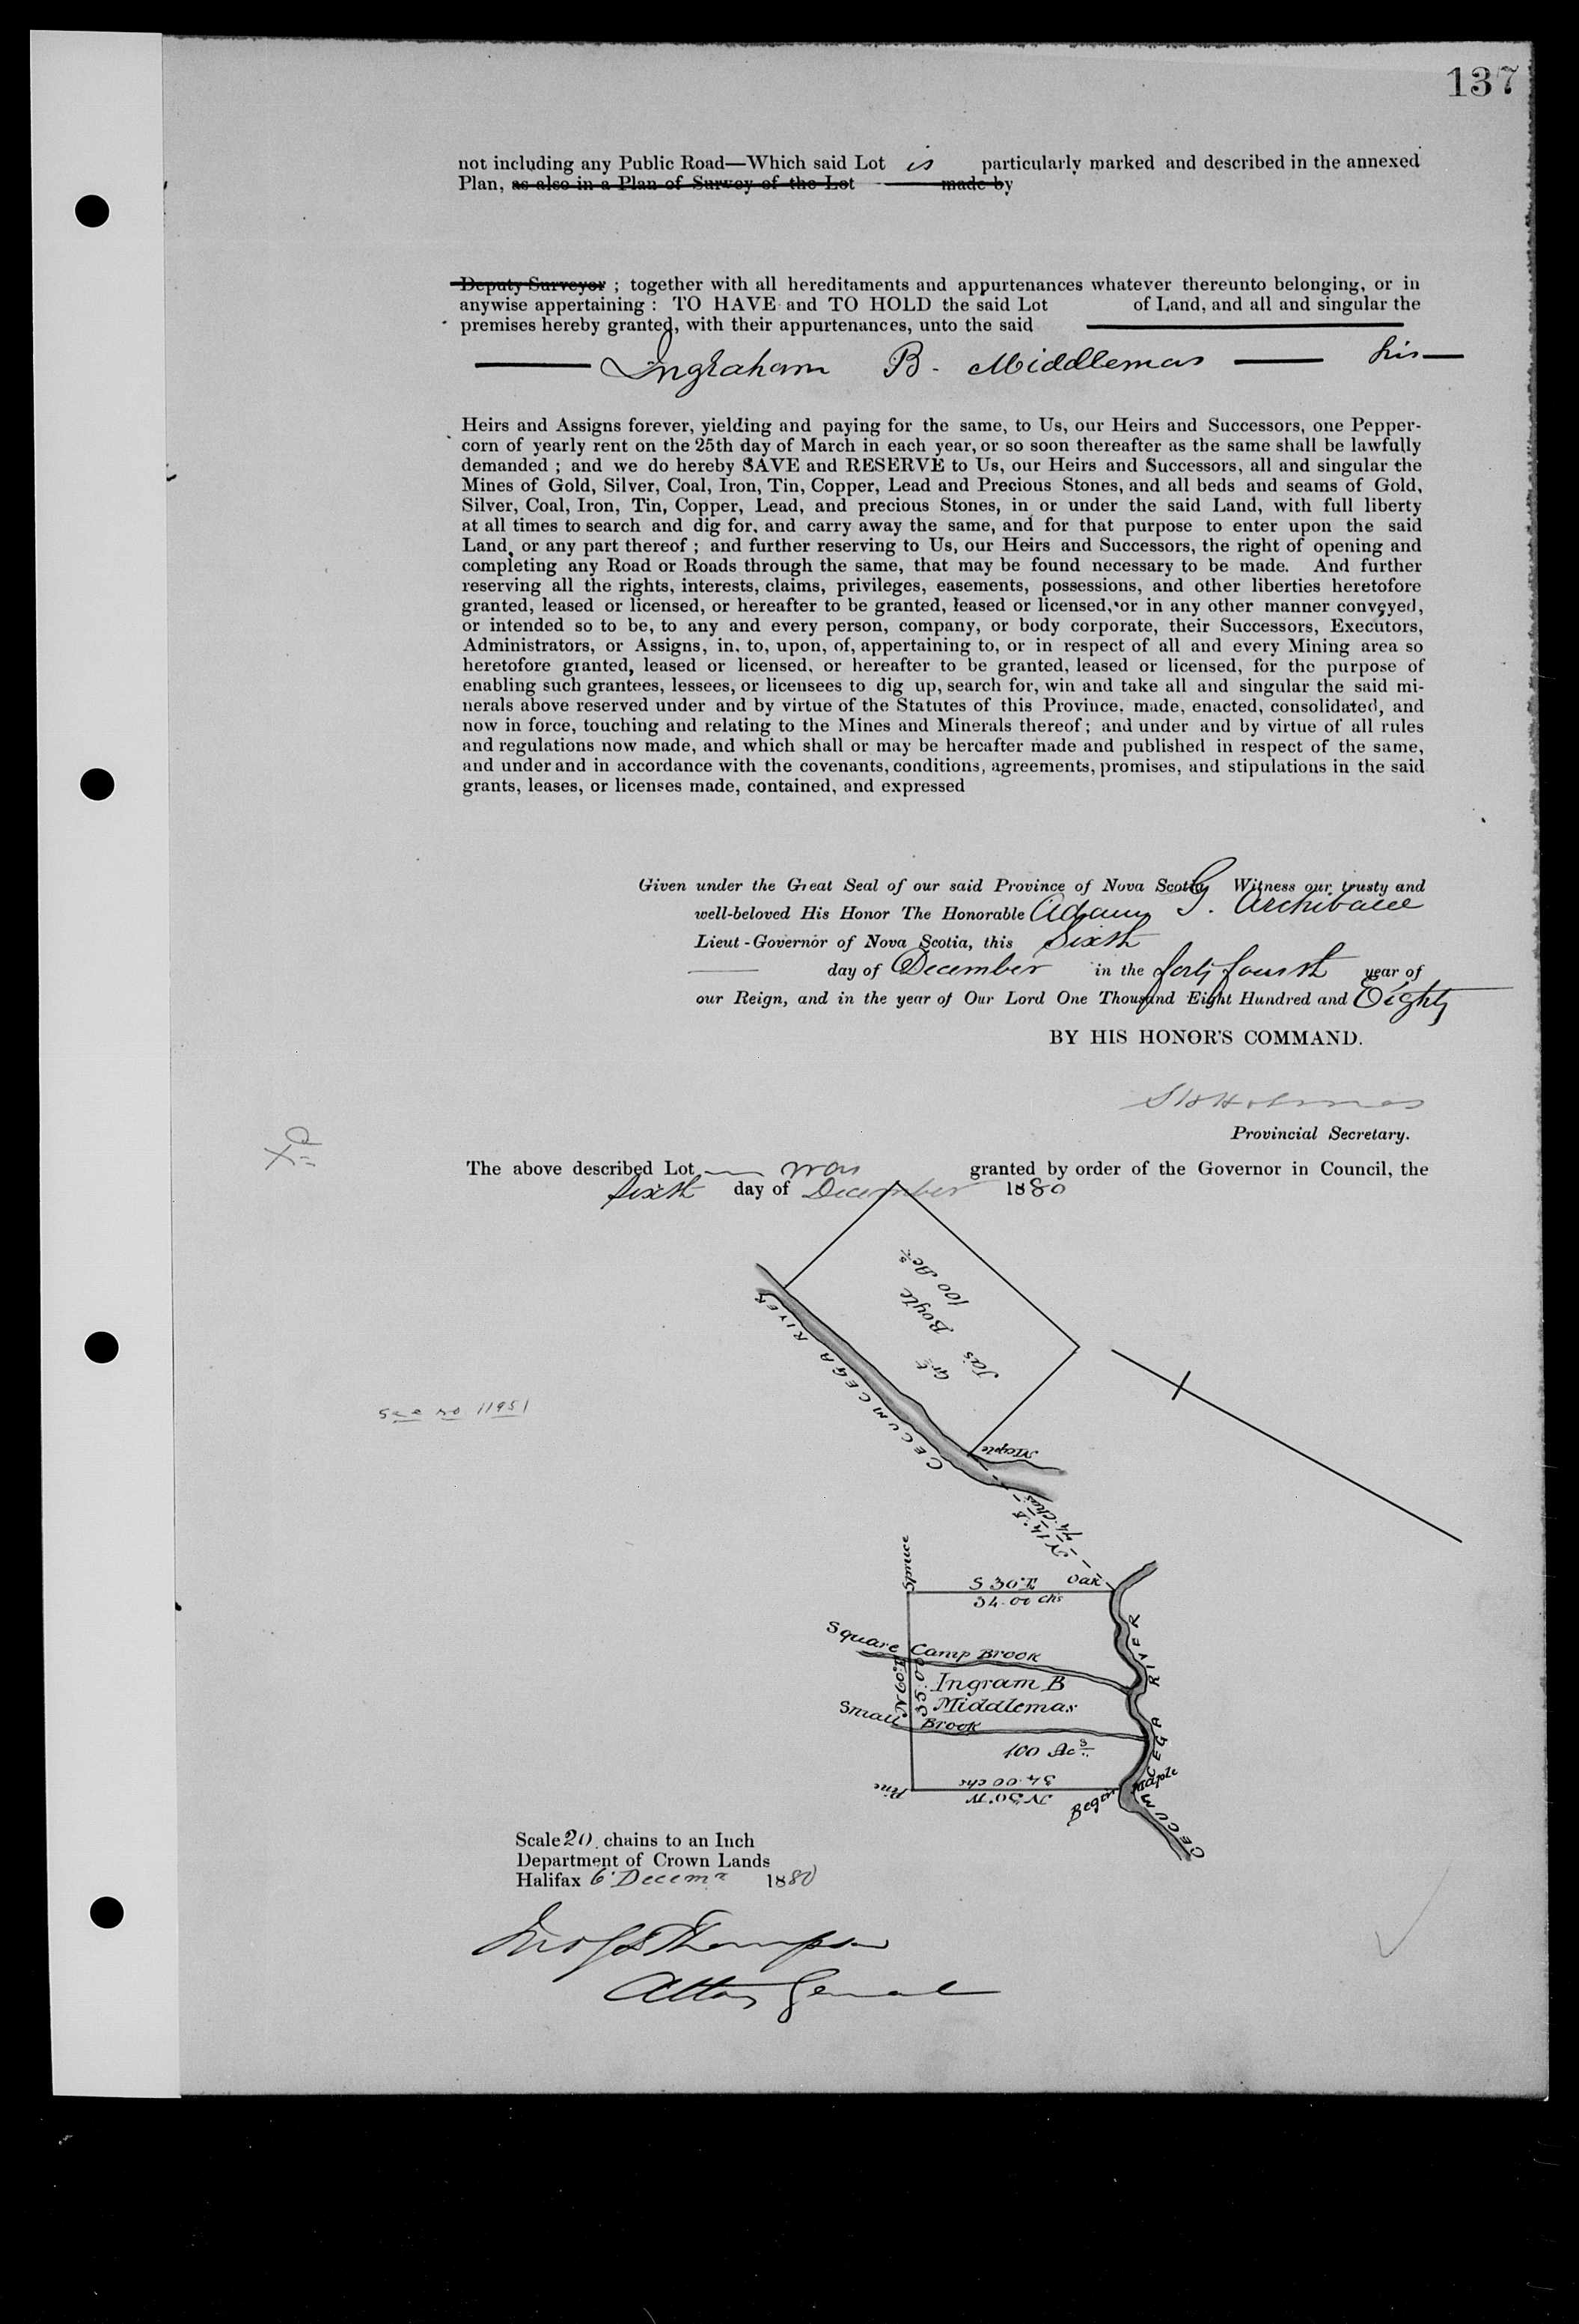 137
not including any Public Road—Which said Lot is particularly marked and described in the annexed
Plan, as also in a Plan of Survey of the Lot made by
Deputy Surveyor ; together with all hereditaments and appurtenances whatever thereunto belonging, or in
anywise appertaining : TO HAVE and TO HOLD the said Lot of Land, and all and singular the
premises hereby granted, with their appurtenances, unto the said
Ingraham B. Middlemas his
Heirs and Assigns forever, yielding and paying for the same, to Us, our Heirs and Successors, one Pepper-
corn of yearly rent on the 25th day of March in each year, or so soon thereafter as the same shall be lawfully
demanded ; and we do hereby SAVE and RESERVE to Us, our Heirs and Successors, all and singular the
Mines of Gold, Silver, Coal, Iron, Tin, Copper, Lead and Precious Stones, and all beds and seams of Gold,
Silver, Coal, Iron, Tin, Copper, Lead, and precious Stones, in or under the said Land, with full liberty
at all times to search and dig for, and carry away the same, and for that purpose to enter upon the said
Land, or any part thereof ; and further reserving to Us, our Heirs and Successors, the right of opening and
completing any Road or Roads through the same, that may be found necessary to be made. And further
reserving all the rights, interests, claims, privileges, easements, possessions, and other liberties heretofore
granted, leased or licensed, or hereafter to be granted, leased or licensed, or in any other manner conveyed,
or intended so to be, to any and every person, company, or body corporate, their Successors, Executors,
Administrators, or Assigns, in, to, upon, of, appertaining to, or in respect of all and every Mining area so
heretofore granted, leased or licensed, or hereafter to be granted, leased or licensed, for the purpose of
enabling such grantees, lessees, or licensees to dig up, search for, win and take all and singular the said mi-
nerals above reserved under and by virtue of the Statutes of this Province, made, enacted, consolidated, and
now in force, touching and relating to the Mines and Minerals thereof ; and under and by virtue of all rules
and regulations now made, and which shall or may be hereafter made and published in respect of the same,
and under and in accordance with the covenants, conditions, agreements, promises, and stipulations in the said
grants, leases, or licenses made, contained, and expressed
Given under the Great Seal of our said Province of Nova Scotia Witness our trusty and
well-beloved His Honor The Honorable Adams G. Archibald
Lieut-Governor of Nova Scotia, this Sixth
day of December in the forty fourth year of
our Reign, and in the year of Our Lord One Thousand Eight Hundred and Eighty
BY HIS HONOR'S COMMAND.
S H Holmes
Provincial Secretary.
The above described Lot was granted by order of the Governor in Council, the
Sixth day of December 1880
Grt
Jas Boyle
100 Acs
CECUMCEGA RIVER
See no 11951
Maple
N 14° E
74 chs
Spruce
S 30° E Oak
34.00 chs
Square Camp Brook
N 60° E
35.00
Ingram B
Middlemas
Small Brook
100 Acs
34.00 chs
N 30° W
Pine
Began Maple
CECUMCEGA RIVER
Scale 20 chains to an Inch
Department of Crown Lands
Halifax 6 Decemr 1880
Jno S D Thompson
Attory General